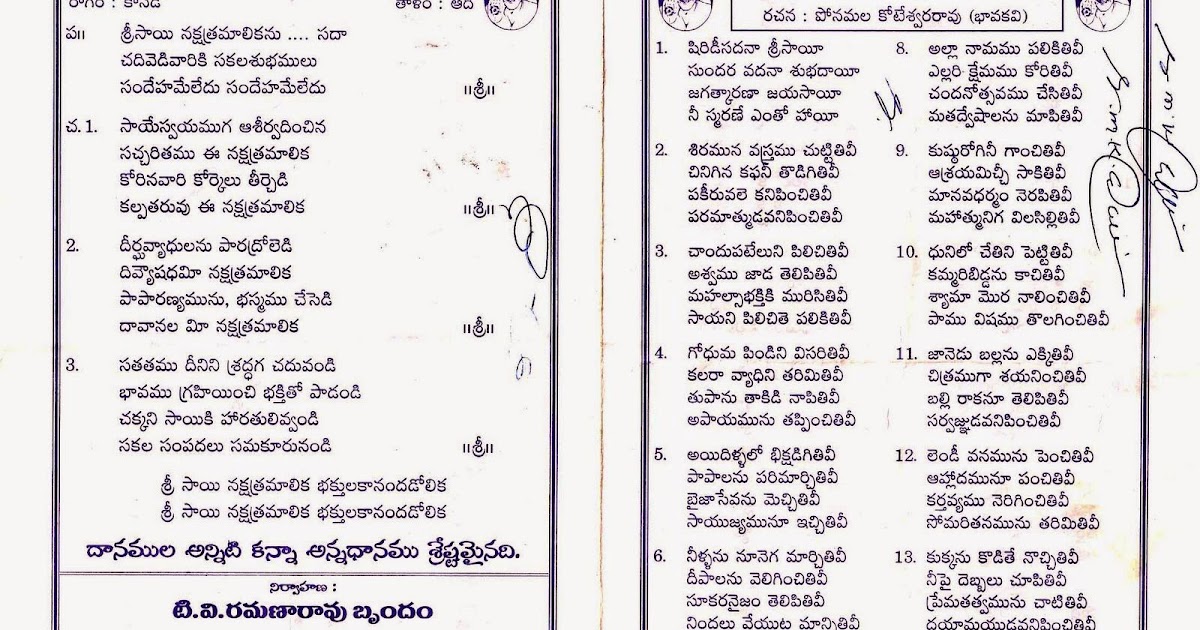 రాగం : కానడ
తాళం : ఆది
ప॥ శ్రీసాయి నక్షత్రమాలికను .... సదా
చదివెడివారికి సకలశుభములు
సందేహమేలేదు సందేహమేలేదు ॥శ్రీ॥
చ. 1. సాయేస్వయముగ ఆశీర్వదించిన
సచ్చరితము ఈ నక్షత్రమాలిక
కోరినవారి కోర్కెలు తీర్చెడి
కల్పతరువు ఈ నక్షత్రమాలిక ॥శ్రీ॥
2. దీర్ఘవ్యాధులను పారద్రోలెడి
దివ్యౌషధమీ నక్షత్రమాలిక
పాపారణ్యమును, భస్మము చేసెడి
దావానల మీ నక్షత్రమాలిక ॥శ్రీ॥
3. సతతము దీనిని శ్రద్ధగ చదువండి
భావము గ్రహియించి భక్తితో పాడండి
చక్కని సాయికి హారతులివ్వండి
సకల సంపదలు సమకూరునండి ॥శ్రీ॥
శ్రీ సాయి నక్షత్రమాలిక భక్తులకానందడోలిక
శ్రీ సాయి నక్షత్రమాలిక భక్తులకానందడోలిక
దానముల అన్నిటి కన్నా అన్నధానము శ్రేష్టమైనది.
నిర్వాహణ :
టి.వి.రమణారావు బృందం
రచన : పోనమల కోటేశ్వరరావు (భావకవి)
1. షిరిడీసదనా శ్రీసాయీ
సుందర వదనా శుభదాయీ
జగత్కారణా జయసాయీ
నీ స్మరణే ఎంతో హాయీ
2. శిరమున వస్త్రము చుట్టితివీ
చినిగిన కఫనీ తొడిగితివీ
పకీరువలె కనిపించితివీ
పరమాత్ముడవనిపించితివీ
3. చాందుపటేలుని పిలిచితివీ
అశ్వము జాడ తెలిపితివీ
మహల్సాభక్తికి మురిసితివీ
సాయని పిలిచితె పలికితివీ
4. గోధుమ పిండిని విసరితివీ
కలరా వ్యాధిని తరిమితివీ
తుపాను తాకిడి నాపితివీ
అపాయమును తప్పించితివీ
5. అయిదిళ్ళలో భిక్షడిగితివీ
పాపాలను పరిమార్చితివీ
బైజాసేవను మెచ్చితివీ
సాయుజ్యమునూ ఇచ్చితివీ
6. నీళ్ళను నూనెగ మార్చితివీ
దీపాలను వెలిగించితివీ
సూకరనైజం తెలిపితివీ
నిందలు వేయుట మాన్పితివీ
8. అల్లా నామము పలికితివీ
ఎల్లరి క్షేమము కోరితివీ
చందనోత్సవము చేసితివీ
మతద్వేషాలను మాపితివీ
9. కుష్ఠురోగినీ గాంచితివీ
ఆశ్రయమిచ్చీ సాకితివీ
మానవధర్మం నెరపితివీ
మహాత్మునిగ విలసిల్లితివీ
10. ధునిలో చేతిని పెట్టితివీ
కమ్మరిబిడ్డను కాచితివీ
శ్యామా మొర నాలించితివీ
పాము విషము తొలగించితివీ
11. జానెడు బల్లను ఎక్కితివీ
చిత్రముగా శయనించితివీ
బల్లి రాకనూ తెలిపితివీ
సర్వజ్ఞుడవనిపించితివీ
12. లెండీ వనమును పెంచితివీ
ఆహ్లాదమునూ పంచితివీ
కర్తవ్యము నెరిగించితివీ
సోమరితనమును తరిమితివీ
13. కుక్కను కొడితే నొచ్చితివీ
నీపై దెబ్బలు చూపితివీ
ప్రేమతత్వమును చాటితివీ
దయామయుడవనిపించితివీ